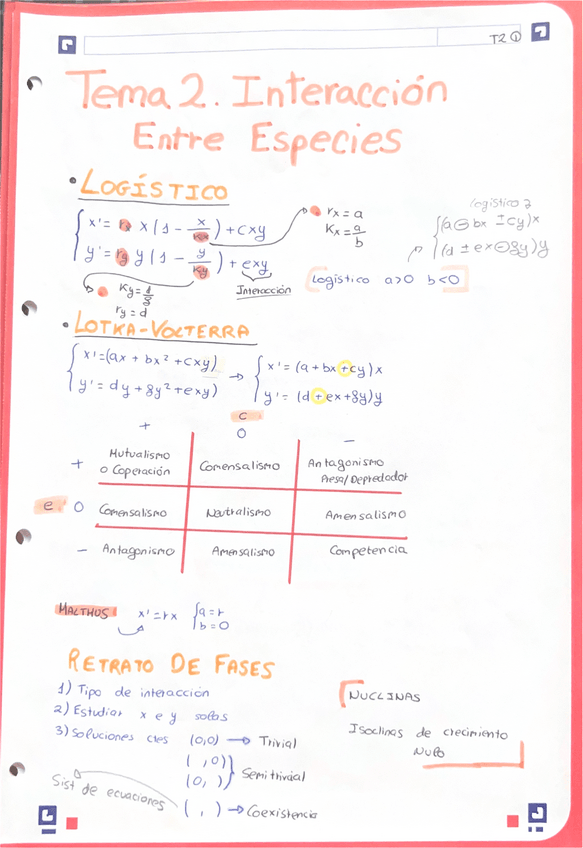 T2 ①
Tema 2. Interacción
Entre Especies
• LOGÍSTICO
x' = rx x (1 - x/Kx) + cxy
y' = ry y (1 - y/Ky) + exy
Interacción
rx = a
Kx = a/b
Ky = d/g
ry = d
logistico 2
(a ⊖ bx ± cy)x
(d ± ex ⊖ gy)y
Logístico a>0 b<0
• LOTKA-VOLTERRA
x' = (ax + bx² + cxy) → x' = (a + bx + cy)x
y' = dy + gy² + exy) y' = (d + ex + gy)y
c
+ 0 -
+ Mutualismo o Coperación Comensalismo Antagonismo Presa/Depredador
e 0 Comensalismo Neutralismo Amensalismo
- Antagonismo Amensalismo Competencia
MALTHUS x' = rx {a = r
b = 0
RETRATO DE FASES
1) Tipo de interacción
2) Estudiar x e y solas
3) Soluciones ctes (0,0) → Trivial
( ,0)
(0, ) } Semitrivial
( , ) → Coexistencia
Sist de ecuaciones
NUCLINAS
Isoclinas de crecimiento
Nulo